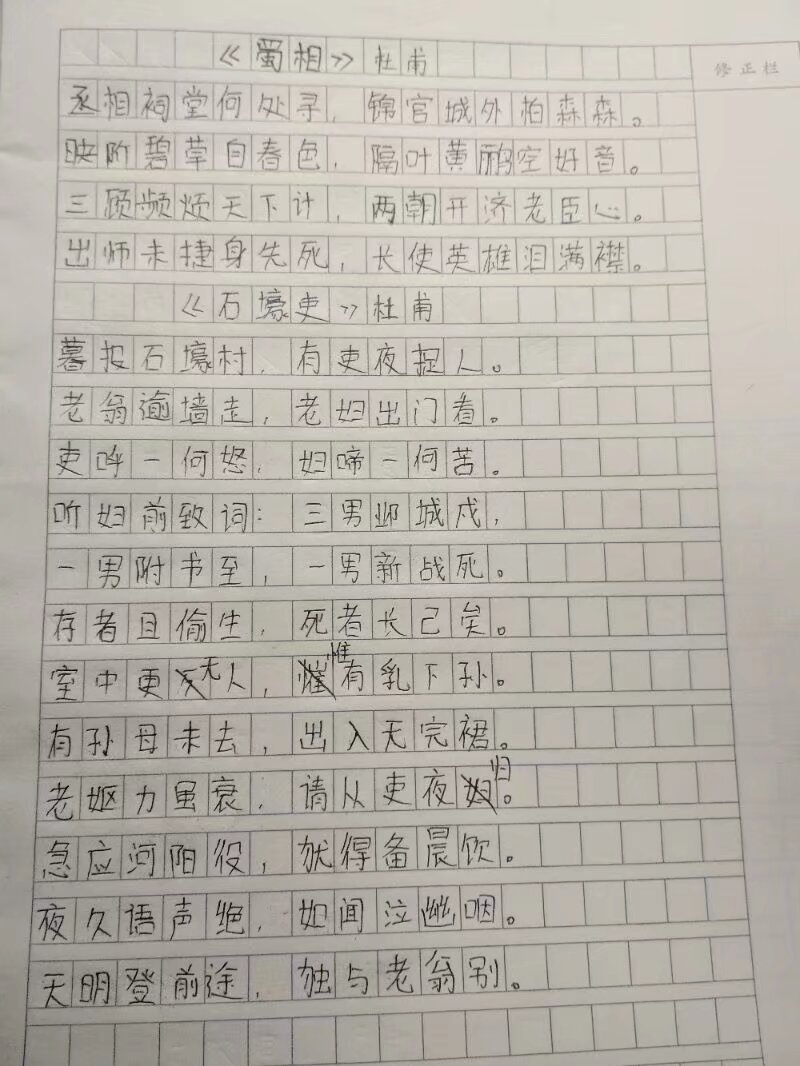 《蜀相》杜甫
修正栏
丞相祠堂何处寻，锦官城外柏森森。
映阶碧草自春色，隔叶黄鹂空好音。
三顾频烦天下计，两朝开济老臣心。
出师未捷身先死，长使英雄泪满襟。
《石壕吏》杜甫
暮投石壕村，有吏夜捉人。
老翁逾墙走，老妇出门看。
吏呼一何怒，妇啼一何苦。
听妇前致词：三男邺城戍，
一男附书至，一男新战死。
存者且偷生，死者长已矣。
室中更无人，惟有乳下孙。
有孙母未去，出入无完裙。
老妪力虽衰，请从吏夜归。
急应河阳役，犹得备晨饮。
夜久语声绝，如闻泣幽咽。
天明登前途，独与老翁别。